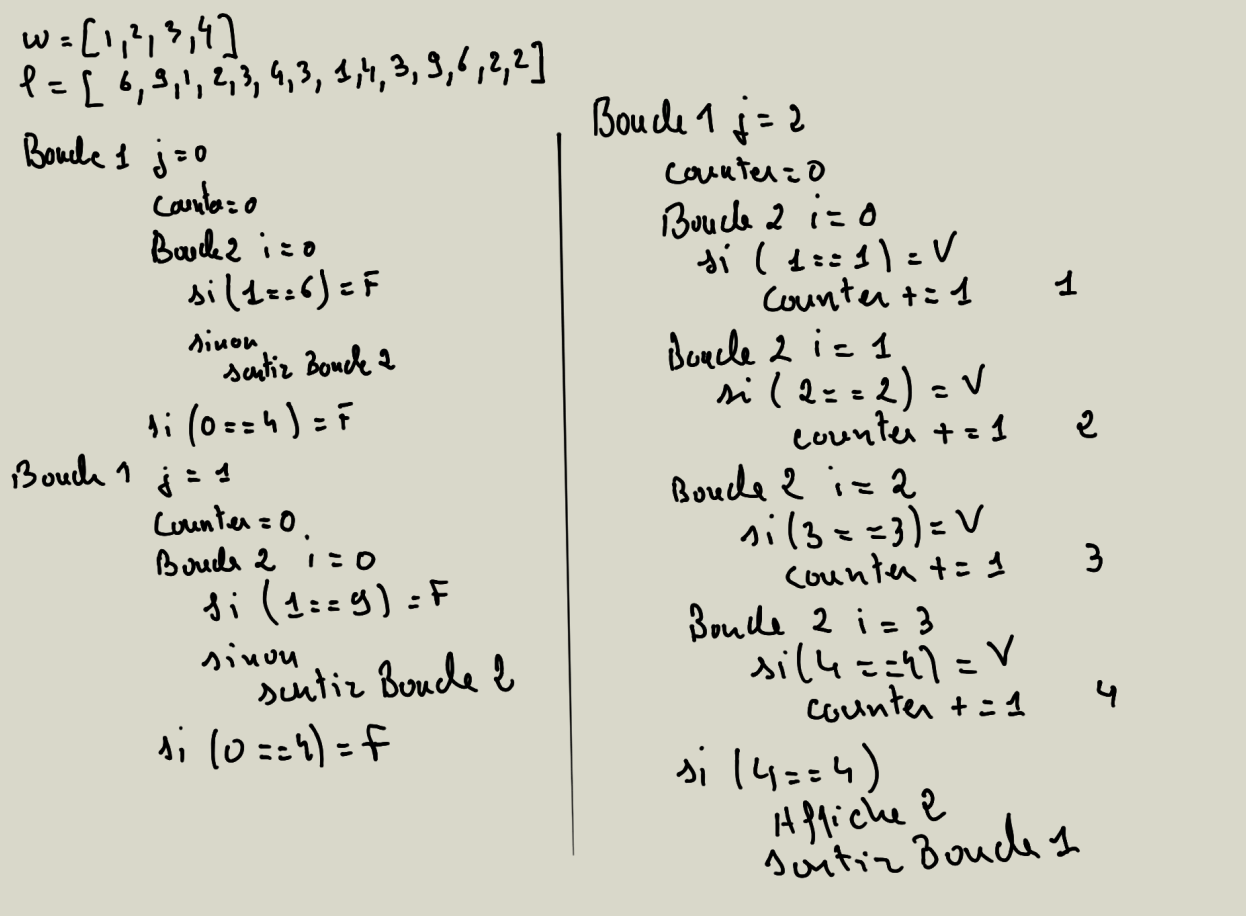 w = [1, 2, 3, 4]
l = [ 6, 9, 1, 2, 3, 4, 3, 1, 4, 3, 9, 6, 2, 2]
Boucle 1 j = 0
counter = 0
Boucle 2 i = 0
si (1 == 6) = F
sinon
sortir Boucle 2
si (0 == 4) = F
Boucle 1 j = 1
counter = 0
Boucle 2 i = 0
si (1 == 9) = F
sinon
sortir Boucle 2
si (0 == 4) = F
Boucle 1 j = 2
counter = 0
Boucle 2 i = 0
si ( 1 == 1) = V
counter += 1 1
Boucle 2 i = 1
si ( 2 == 2) = V
counter += 1 2
Boucle 2 i = 2
si (3 == 3) = V
counter += 1 3
Boucle 2 i = 3
si (4 == 4) = V
counter += 1 4
si (4 == 4)
Affiche 2
sortir Boucle 1